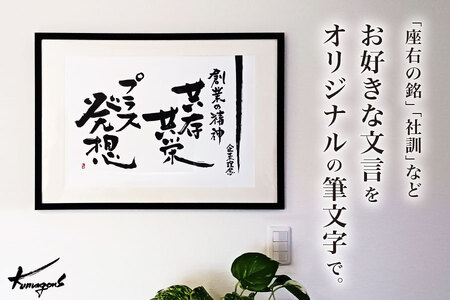 「座右の銘」「社訓」など
お好きな文言を
オリジナルの筆文字で。
創業の精神
企業理念
共存
共栄
プラス
発想
Kumagons